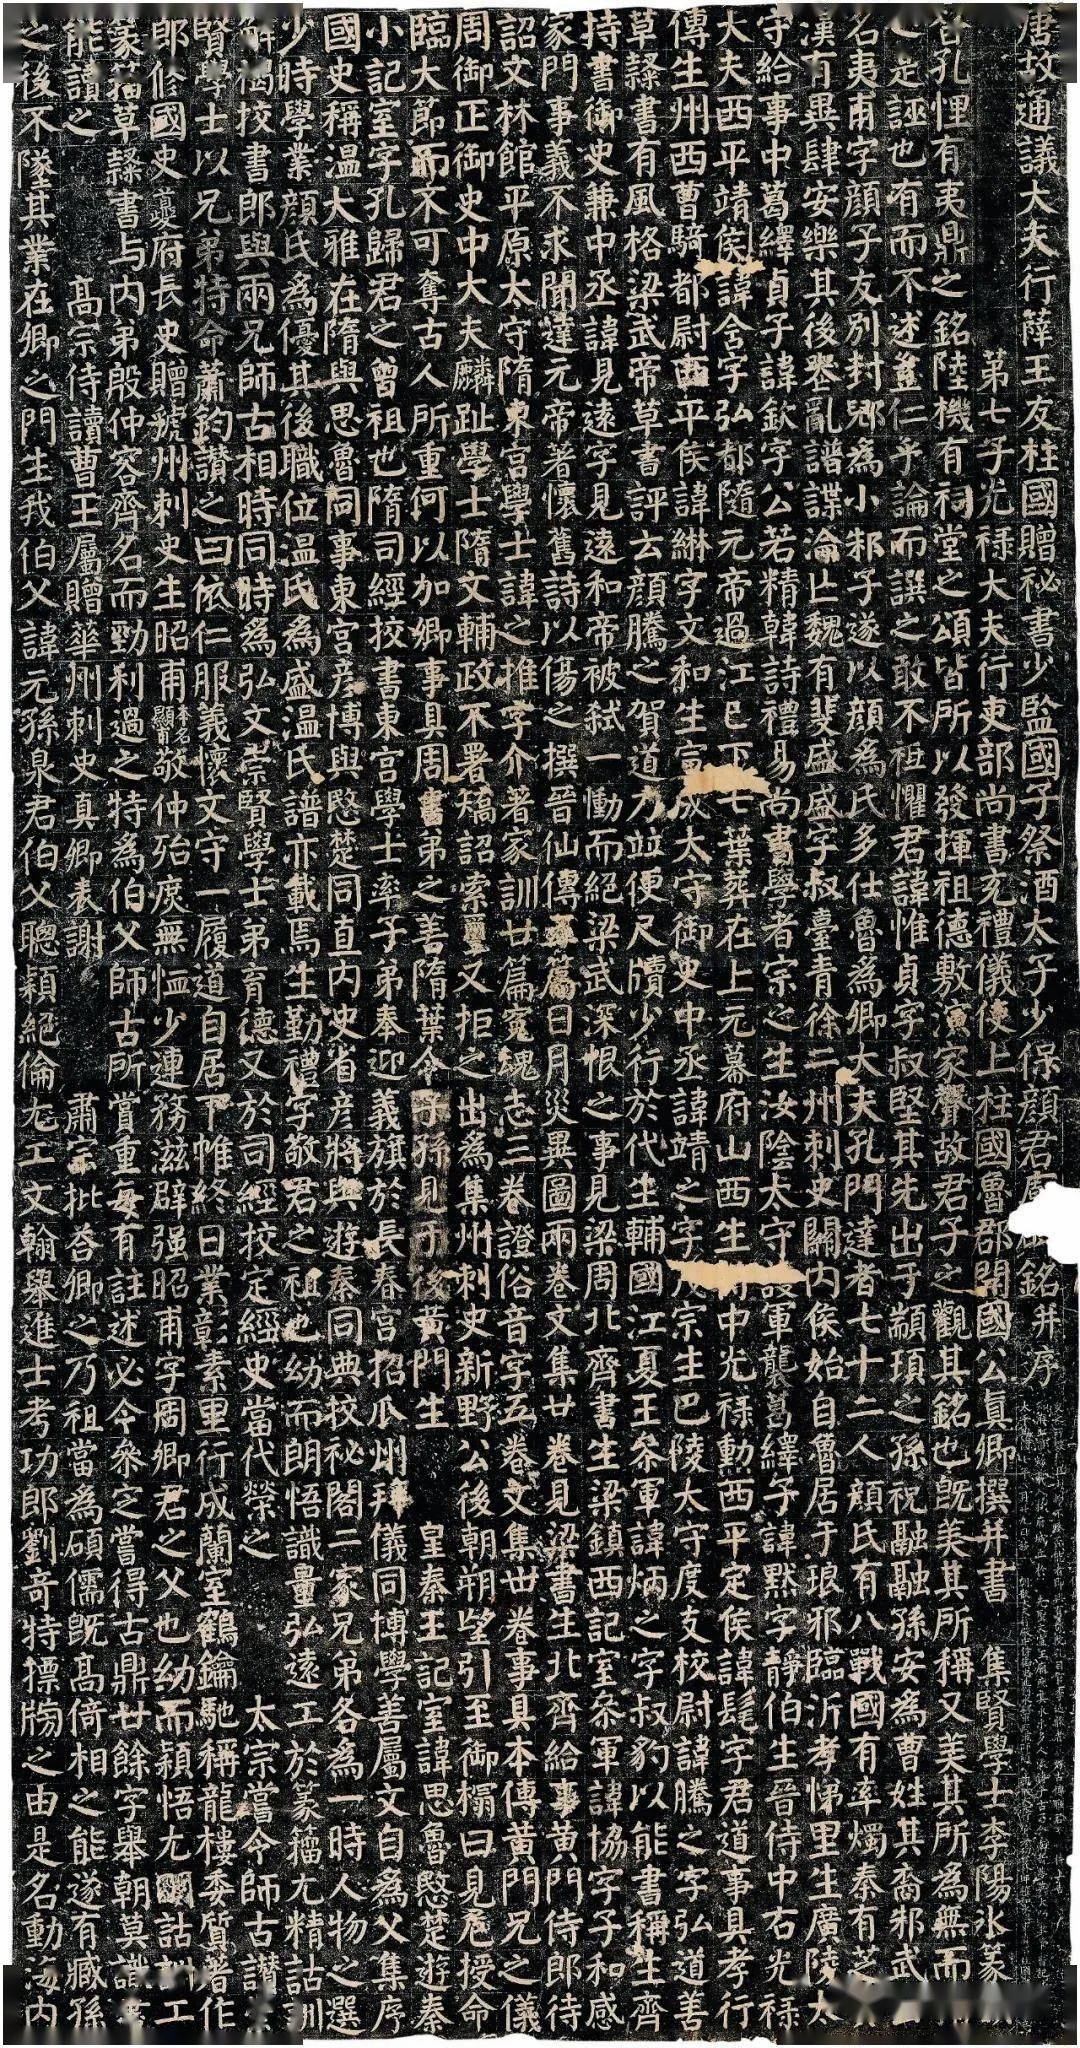 唐故通議大夫行薛王友柱國贈秘書少監國子祭酒太子少保顏君銘并序
第七子光祿大夫行吏部尚書充禮儀使上柱國魯郡開國公真卿撰并書 集賢學士李陽冰篆額
昔孔悝有夷鼎之銘陸機有祠堂之頌皆所以發揮祖德敷演家聲故君子之觀其銘也既美其所稱又美其所為無而
之是誣也有而不述豈仁乎論而譔之敢不祗懼君諱惟貞字叔堅其先出于顓頊之孫祝融融孫安為曹姓其裔邾武
名夷甫字顏子友別封郳為小邾子遂以顏為氏多仕魯為卿大夫孔門達者七十二人顏氏有八戰國有率燭秦有芝
漢有異肆安樂其後喪亂譜諜淪亡魏有斐盛盛字叔臺青徐二州刺史關內侯始自魯居于琅邪臨沂孝悌里生廣陵太
守給事中葛繹貞子諱欽字公若精韓詩禮易尚書學者宗之生汝陰太守護軍襲葛繹子諱默字靜伯生晉侍中右光祿
大夫西平靖侯諱含字弘都隨元帝過江已下七葉葬在上元幕府山西生侍中光祿勳西平定侯諱髦字君道事具孝行
傳生州西曹騎都尉西平侯諱綝字文和生宣城太守御史中丞諱靖之字茂宗生巴陵太守度支校尉諱騰之字弘道善
草隸書有風格梁武帝草書評云顏騰之賀道力並便尺牘少行於代生輔國江夏王參軍諱炳之字叔豹以能書稱生齊
持書御史兼中丞諱見遠字見遠和帝被弒一慟而絕梁武深恨之事見梁周北齊書生梁鎮西記室參軍諱協字子和感
家門事義不求聞達元帝著懷舊詩以傷之撰晉仙傳五篇日月災異圖兩卷文集廿卷見梁書生北齊給事黃門侍郎待
詔文林館平原太守隋東宮學士諱之推字介著家訓廿篇冤魂志三卷證俗音字五卷文集卅卷事具本傳黃門兄之儀
周御正御史中大夫麟趾學士隋文輔政不署矯詔索璽又拒之出為集州刺史新野公後朝朔望引至御榻曰見危授命
臨大節而不可奪古人所重何以加卿事具周書弟之善隋葉令子孫見于後黃門生 皇秦王記室諱思魯愍楚遊秦
小記室字孔歸君之曾祖也隋司經校書東宮學士率子弟奉迎義旗於長春宮招瓜州拜儀同博學善屬文自為父集序
國史稱溫大雅在隋與思魯同事東宮彥博與愍楚同直內史省彥將與遊秦同典校秘閣二家兄弟各為一時人物之選
少時學業顏氏為優其後職位溫氏為盛溫氏譜亦載焉生勤禮字敬君之祖也幼而朗悟識量弘遠工於篆籀尤精詁訓
解褐校書郎與兩兄師古相時同時為弘文崇賢學士弟育德又於司經校定經史當代榮之 太宗嘗令師古讚
賢學士以兄弟特命蕭鈞讚之曰依仁服義懷文守一履道自居下帷終日業彰素里行成蘭室鶴鑰馳稱龍樓委質著作
郎修國史夔府長史贈虢州刺史生昭甫本名顯甫敬仲殆庶無恤少連務滋辟強昭甫字周卿君之父也幼而穎悟尤明詁訓工
篆籀草隸書与內弟殷仲容齊名而勁利過之特為伯父師古所賞重每有註述必令參定嘗得古鼎廿餘字舉朝莫識盡
能讀之 高宗侍讀曹王屬贈華州刺史真卿表謝 肅宗批答卿之乃祖當為碩儒既高倚相之能遂有臧孫
之後不墜其業在卿之門生我伯父諱元孫泉君伯父聰穎絕倫尤工文翰舉進士考功郎劉奇特摽牓之由是名動海內